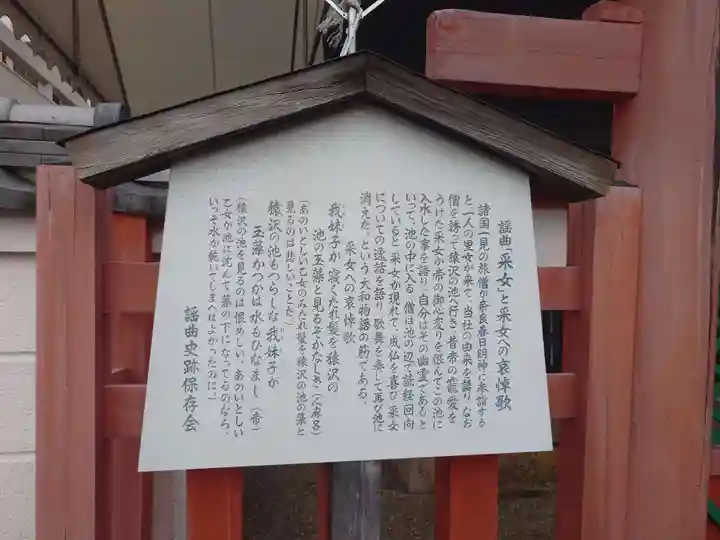 謡曲「采女」と采女への哀悼歌
諸国一見の旅僧が奈良春日明神に参詣する
と、一人の里女が来て、当社の由来を語り、なお
僧を誘って猿沢の池へ行き、昔帝の寵愛を
うけた采女が帝の御心変りを恨んでこの池に
入水した事を語り、自分はその幽霊であると
いって、池の中に入る。僧は池の辺で読経回向
していると采女が現れて、成仏を喜び采女
についての逸話を語り、歌舞を奏して再び池に
消えた。という大和物語の筋である。
采女への哀悼歌
我妹子が寝くたれ髪を猿沢の
池の玉藻と見るぞかなしき(人麻呂)
(あのいとしい乙女のみだれ髪を猿沢の池の藻と
見るのは悲しいことだ。)
猿沢の池もつらしな我妹子が
玉藻かつかは水もひなまし(帝)
(猿沢の池を見るのは恨めしい。あのいとしい
乙女が池に沈んで藻の下になってるのなら、
いっそ水が乾いてしまへばよかったのに。)
謡曲史跡保存会